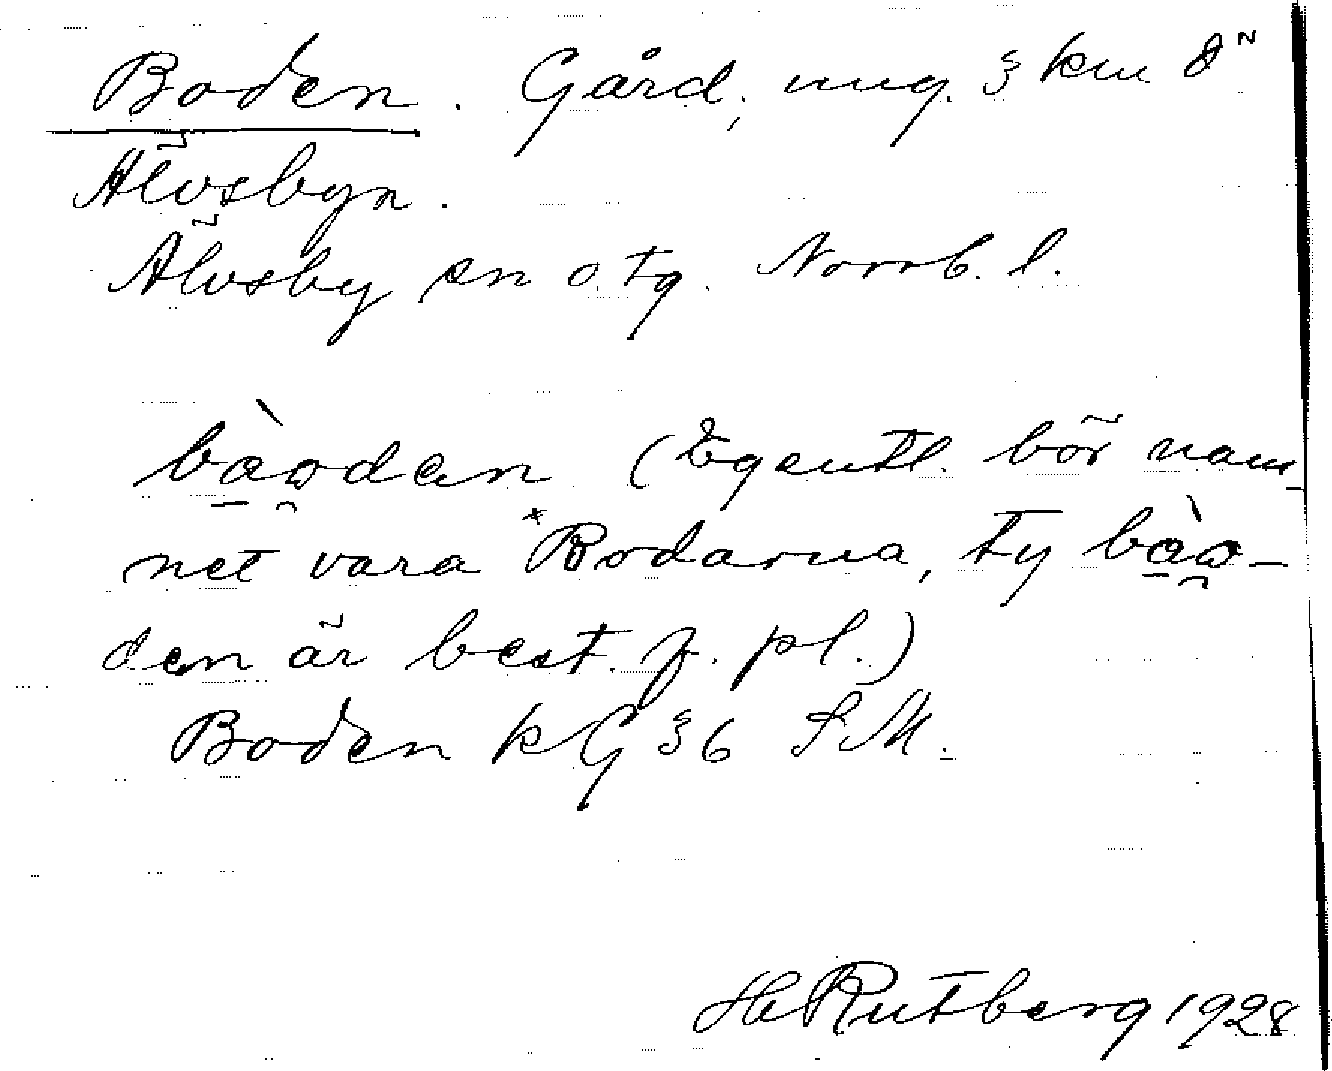 Boden. Gård, ung. 3 km Ö
Älvsbyn.
Älvsby sn o. tg. Norrb. l.
bàoden (Egentl. bör nam-
net vara *Bodarna, ty bào-
den är best. f. pl.)
Boden kG 36 S.M.
H Rutberg 1928